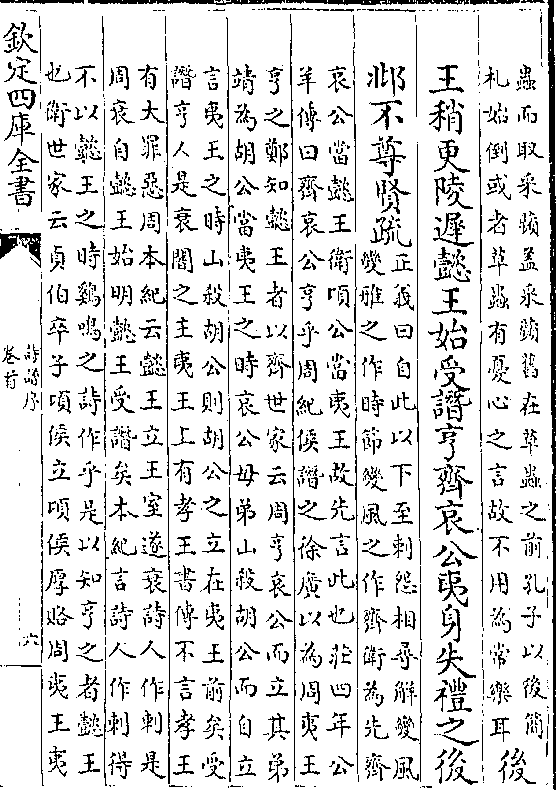 蟲而取采蘋蓋采蘋舊在草蟲之前孔子以後簡
札始倒或者草蟲有憂心之言故不用為常樂耳
後
王稍更陵遲懿王始受譖亨齊哀公夷身失禮之後
邶不尊賢疏
正義曰自此以下至刺怨相尋解變風
變雅之作時節變風之作齊衛為先齊
哀公當懿王衛頃公當夷王故先言此也莊四年公
羊傳曰齊哀公亨乎周紀侯譖之徐廣以為周夷王
亨之鄭知懿王者以齊世家云周亨哀公而立其弟
靖為胡公當夷王之時哀公母弟山殺胡公而自立
言夷王之時山殺胡公則胡公之立在夷王前矣受
譖亨人是衰闇之主夷王上有孝王書傳不言孝王
有大罪惡周本紀云懿王立王室遂衰詩人作刺是
周衰自懿王始明懿王受譖矣本紀言詩人作刺得
不以懿王之時雞鳴之詩作乎是以知亨之者懿王
也衛世家云貞伯卒子頃侯立頃侯厚賂周夷王夷
欽定四庫全書
詩譜序
卷首
六